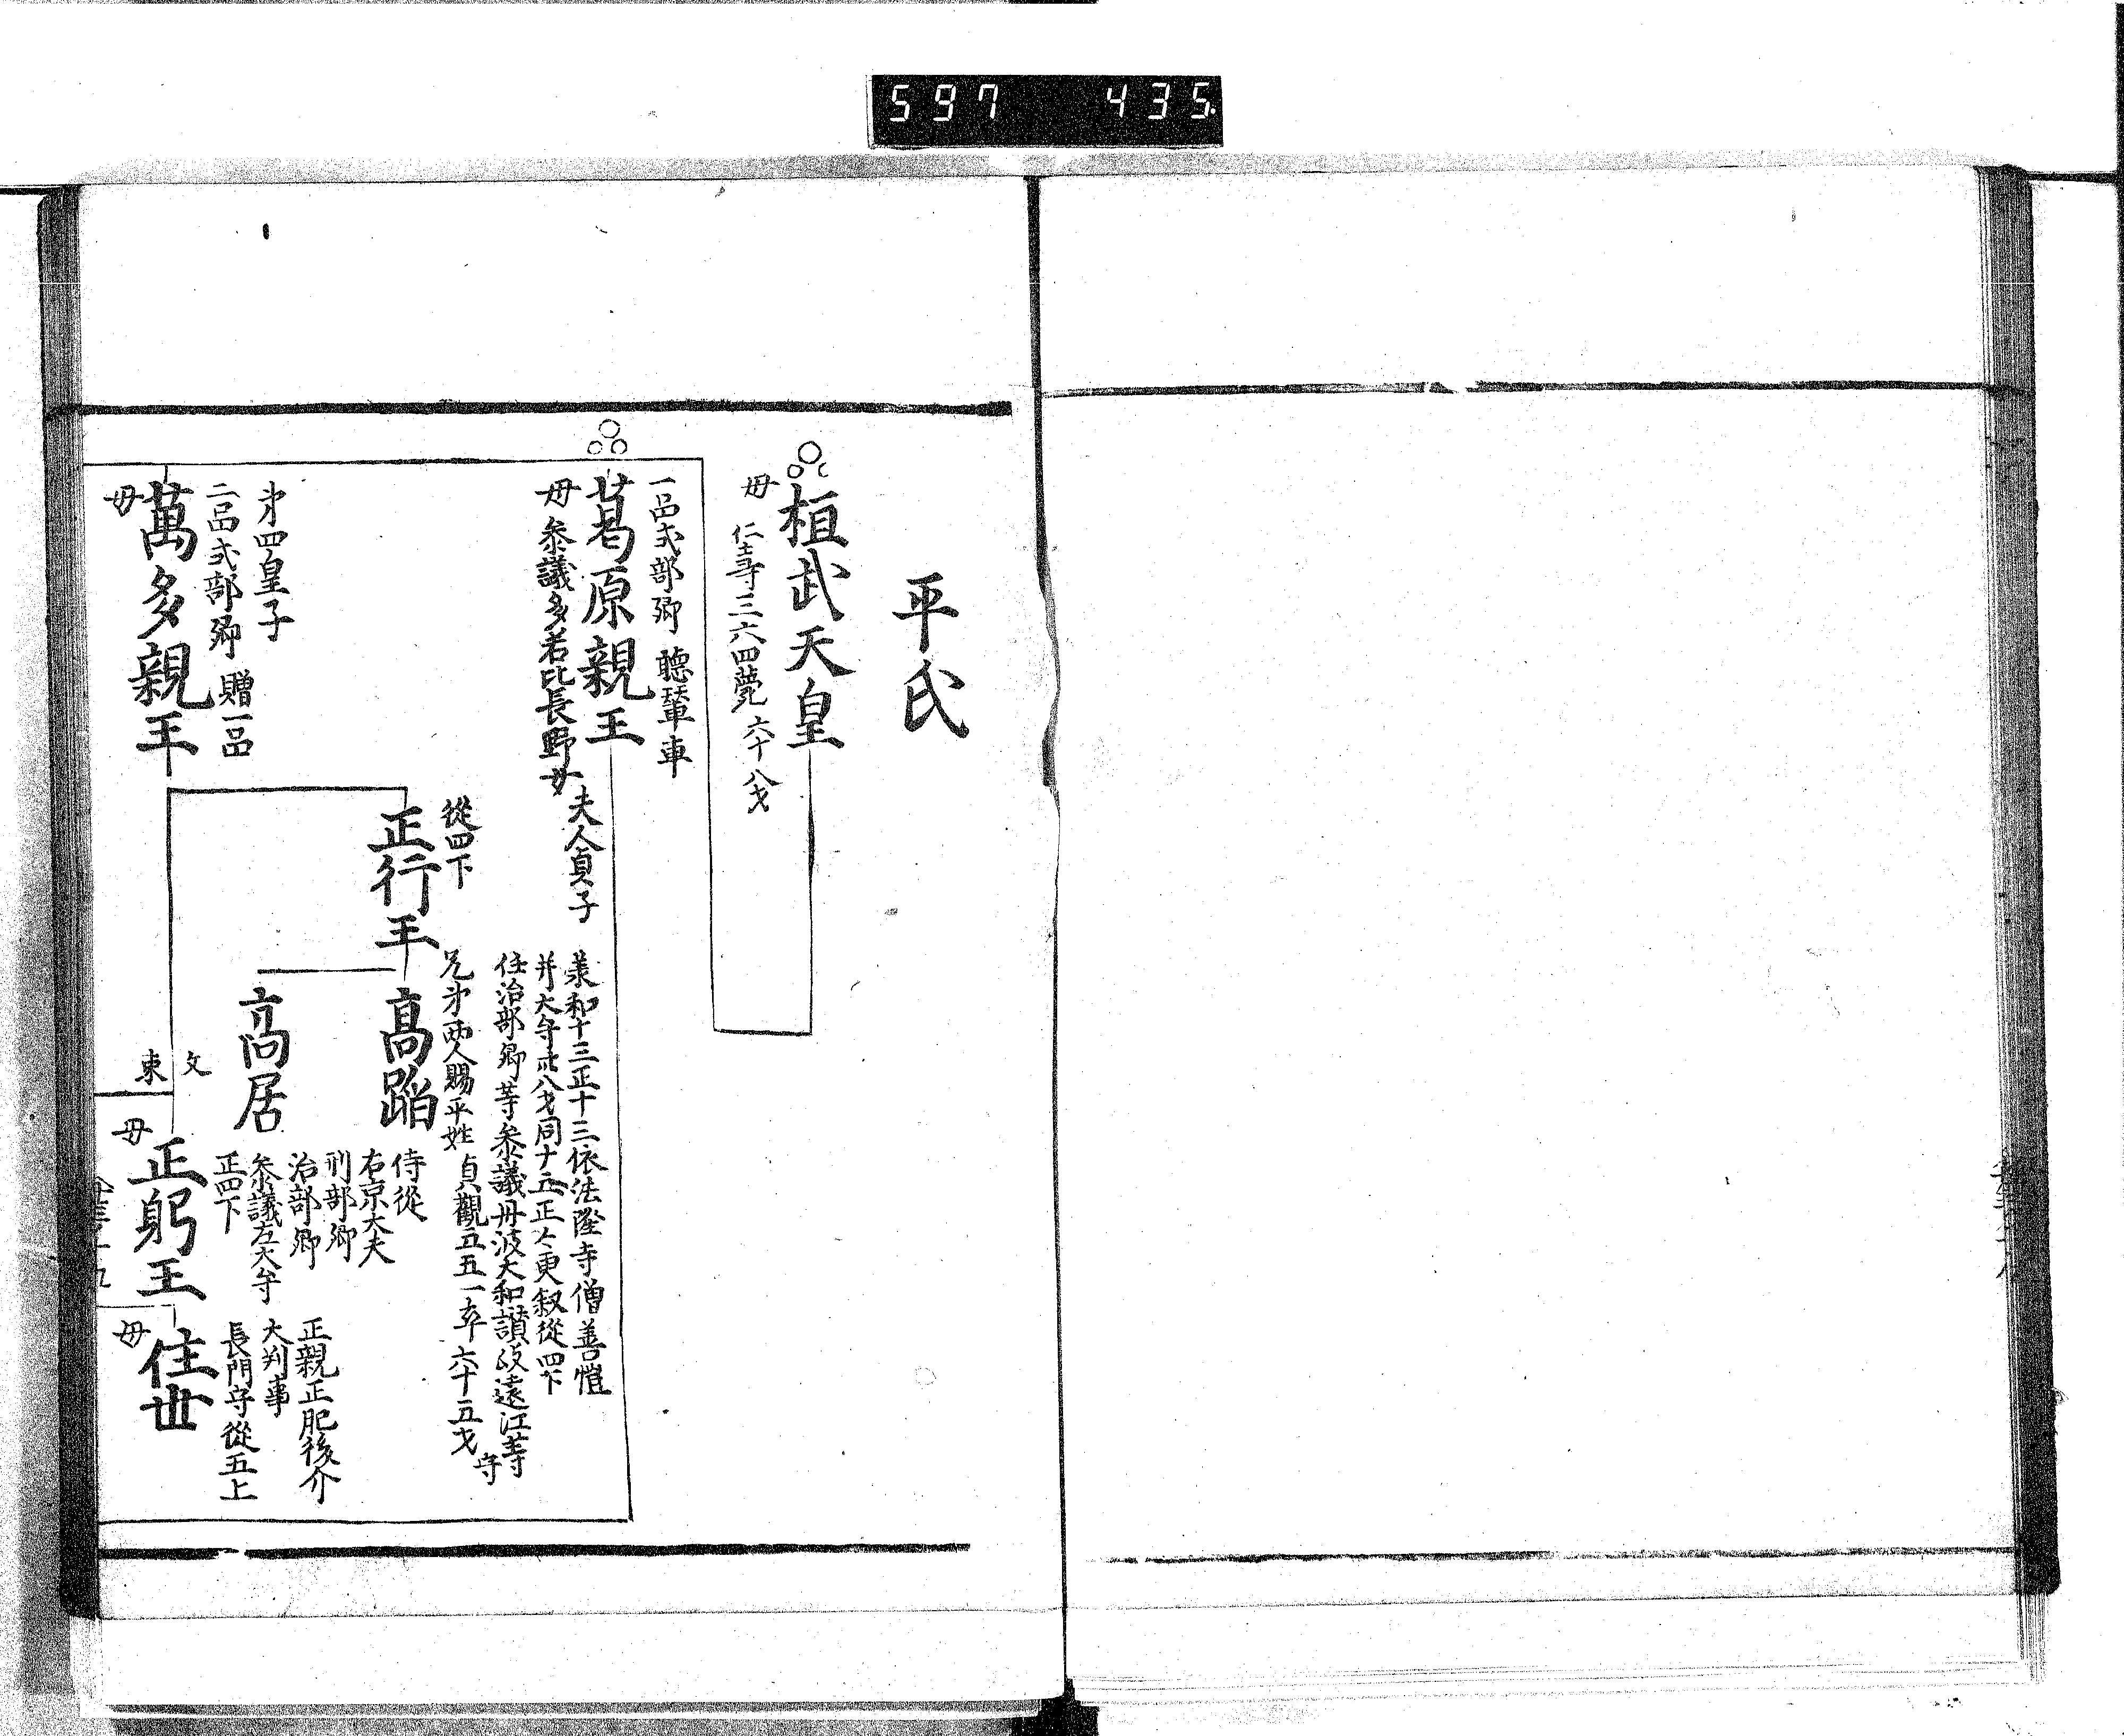 597 435
平氏
桓武天皇
母
仁寿三六四薨 六十八才
一品式部卿 聴輦車
葛原親王
母 参議多若比長野女
夫人貞子
承和十三正十三依法隆寺僧善愷
并大弁 八才同十五正 更叙従四下
任治部卿等参議丹波大和讃岐遠江等
守
兄弟両人賜平姓 貞観五五一卒六十五才
従四下
正行王
高蹈
侍従
右京大夫
刑部卿
治部卿
参議左大弁
正四下
高居
第四皇子
二品式部卿 贈一品
萬多親王
母
文
東
正躬王
母
正親正肥後介
大判事
長門守従五上
住世
母